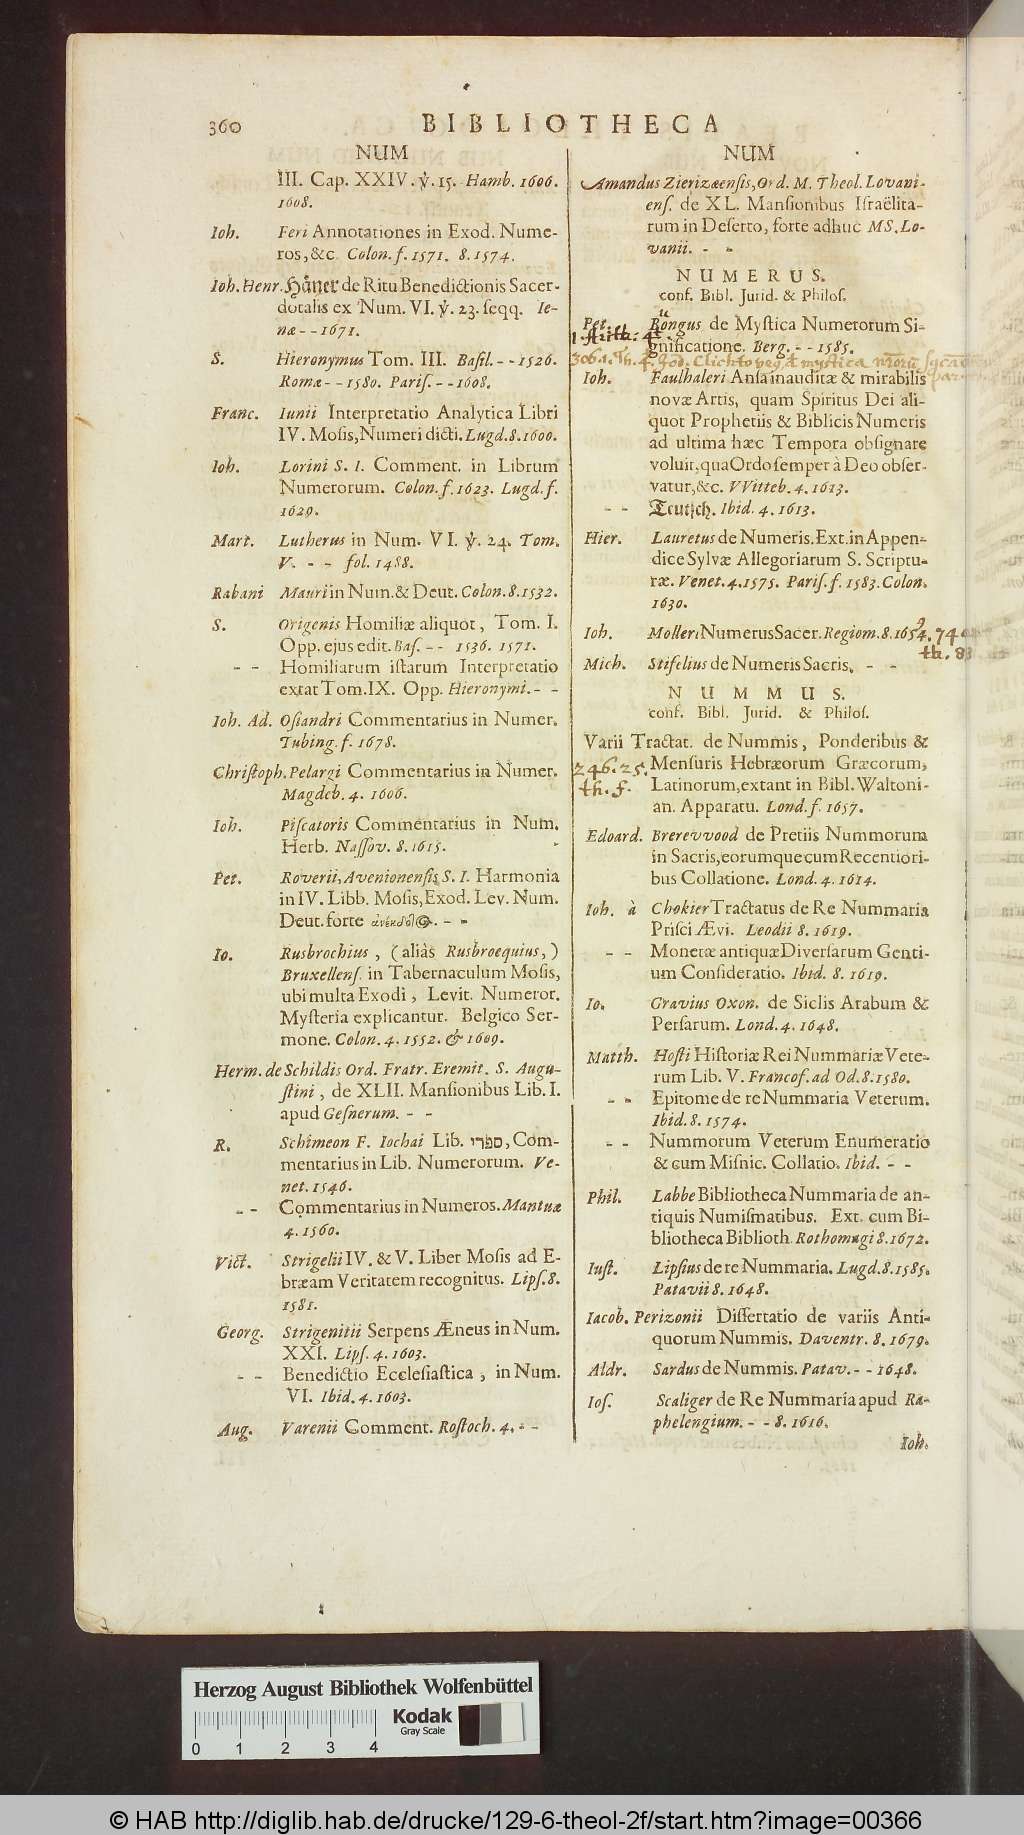 360
BIBLIOTHECA
NUM
III. Cap. XXIV. ℣. 15. Hamb. 1606.
1608.
Ioh. Feri Annotationes in Exod. Nume-
ros, &c. Colon. f. 1571. 8. 1574.
Ioh. Henr. Häner de Ritu Benedictionis Sacer-
dotalis ex Num. VI. ℣. 23. seqq. Ie-
næ - - 1671.
S. Hieronymus Tom. III. Basil. - - 1526.
Romæ - - 1580. Paris. - - 1608.
Franc. Iunii Interpretatio Analytica Libri
IV. Mosis, Numeri dicti. Lugd. 8. 1600.
Ioh. Lorini S. I. Comment. in Librum
Numerorum. Colon. f. 1623. Lugd. f.
1629.
Mart. Lutherus in Num. VI. ℣. 24. Tom.
V. - - fol. 1488.
Rabani Mauri in Num. & Deut. Colon. 8. 1532.
S. Origenis Homiliæ aliquot, Tom. I.
Opp. ejus edit. Bas. - - 1536. 1571.
- - Homiliarum istarum Interpretatio
extat Tom. IX. Opp. Hieronymi. - -
Ioh. Ad. Osiandri Commentarius in Numer.
Tubing. f. 1678.
Christoph. Pelargi Commentarius in Numer.
Magdeb. 4. 1606.
Ioh. Piscatoris Commentarius in Num.
Herb. Nassov. 8. 1615.
Pet. Roverii, Avenionensis, S. I. Harmonia
in IV. Libb. Mosis, Exod. Lev. Num.
Deut. forte - -
Io. Rusbrochius, (aliàs Rusbroequius,)
Bruxellens. in Tabernaculum Mosis,
ubi multa Exodi, Levit. Numeror.
Mysteria explicantur. Belgico Ser-
mone. Colon. 4. 1552. & 1609.
Herm. de Schildis Ord. Fratr. Eremit. S. Augu-
stini, de XLII. Mansionibus Lib. I.
apud Gesnerum. - -
R. Schimeon F. Iochai Lib. ספרי, Com-
mentarius in Lib. Numerorum. Ve-
net. 1546.
- - Commentarius in Numeros. Mantuæ
4. 1560.
Vict. Strigelii IV. & V. Liber Mosis ad E-
bræam Veritatem recognitus. Lips. 8.
1581.
Georg. Strigenitii Serpens Æneus in Num.
XXI. Lips. 4. 1603.
- - Benedictio Ecclesiastica, in Num.
VI. Ibid. 4. 1603.
Aug. Varenii Comment. Rostoch. 4. - -
NUM
Amandus Zierizæensis, Ord. M. Theol. Lovani-
ens. de XL. Mansionibus Israëlita-
rum in Deserto, forte adhuc MS. Lo-
vanii. - -
NUMERUS.
conf. Bibl. Jurid. & Philos.
Pet. Bongus de Mystica Numerorum Si-
u
1. Arith. 4.
gnificatione. Berg. - - 1585.
306.1. Th. 4. Jod. Clichtoveg d mystica
Ioh. Faulhaleri Ansa inauditæ & mirabilis
novæ Artis, quam Spiritus Dei ali-
quot Prophetiis & Biblicis Numeris
ad ultima hæc Tempora obsignare
voluit, qua Ordo semper à Deo obser-
vatur, &c. VVitteb. 4. 1613.
- - Teutsch. Ibid. 4. 1613.
Hier. Lauretus de Numeris. Ext. in Appen-
dice Sylvæ Allegoriarum S. Scriptu-
ræ. Venet. 4. 1575. Paris. f. 1583. Colon.
1630.
Ioh. Molleri Numerus Sacer. Regiom. 8. 165 9 4. 74
th. 83
Mich. Stifelius de Numeris Sacris. - -
NUMMUS.
conf. Bibl. Jurid. & Philos.
Varii Tractat. de Nummis, Ponderibus &
246. 25. Mensuris Hebræorum Græcorum,
th. f. Latinorum, extant in Bibl. Waltoni-
an. Apparatu. Lond. f. 1657.
Edoard. Brerevvood de Pretiis Nummorum
in Sacris, eorumque cum Recentiori-
bus Collatione. Lond. 4. 1614.
Ioh. à Chokier Tractatus de Re Nummaria
Prisci Ævi. Leodii 8. 1619.
- - Monetæ antiquæ Diversarum Genti-
um Consideratio. Ibid. 8. 1619.
Io. Gravius Oxon. de Siclis Arabum &
Persarum. Lond. 4. 1648.
Matth. Hosti Historiæ Rei Nummariæ Vete-
rum Lib. V. Francof. ad Od. 8. 1580.
- - Epitome de re Nummaria Veterum.
Ibid. 8. 1574.
- - Nummorum Veterum Enumeratio
& cum Misnic. Collatio. Ibid. - -
Phil. Labbe Bibliotheca Nummaria de an-
tiquis Numismatibus. Ext. cum Bi-
bliotheca Biblioth. Rothomagi 8. 1672.
Iust. Lipsius de re Nummaria. Lugd. 8. 1585.
Patavii 8. 1648.
Iacob. Perizonii Dissertatio de variis Anti-
quorum Nummis. Daventr. 8. 1679.
Aldr. Sardus de Nummis. Patav. - - 1648.
Ios. Scaliger de Re Nummaria apud Ra-
phelengium. - - 8. 1616.
Ioh.
Herzog August Bibliothek Wolfenbüttel
Kodak
Gray Scale
0 1 2 3 4
© HAB http://diglib.hab.de/drucke/129-6-theol-2f/start.htm?image=00366